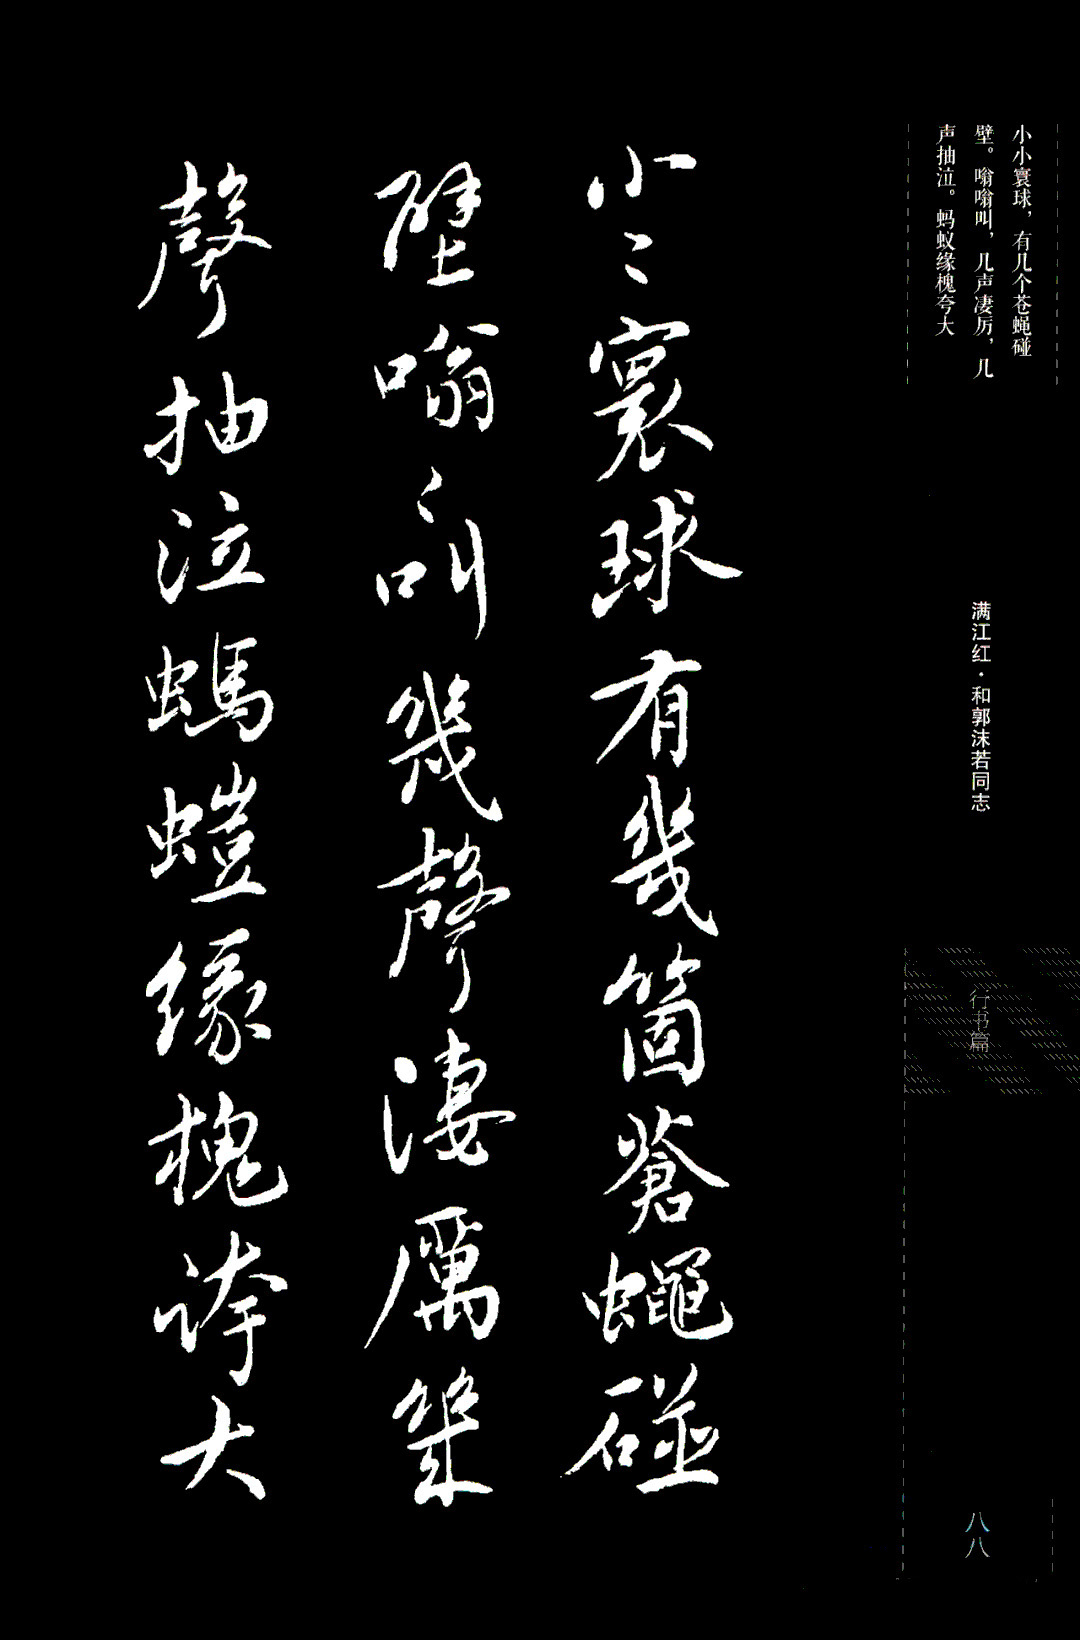 小小寰球，有几个苍蝇碰
壁。嗡嗡叫，几声凄厉，几
声抽泣。蚂蚁缘槐夸大
满江红·和郭沫若同志
行书篇
八八
小〻寰球有幾箇蒼蠅碰
壁嗡〻叫幾聲淒厲幾
聲抽泣螞螘缘槐誇大